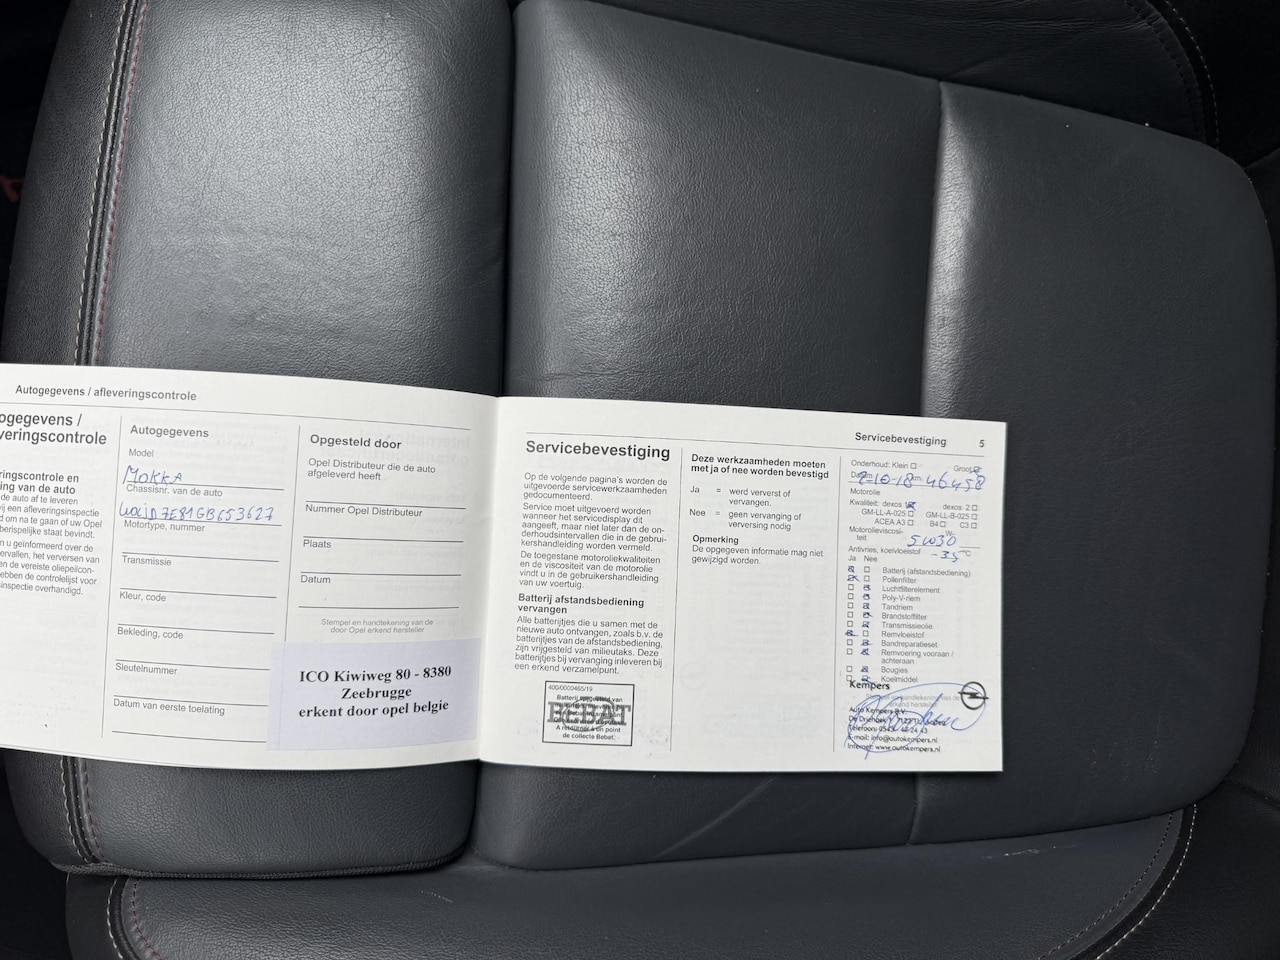 Autogegevens / afleveringscontrole
ogegevens /
veringscontrole
ringscontrole en
ing van de auto
de auto af te leveren
ij een afleveringsinspectie
d om na te gaan of uw Opel
berispelijke staat bevindt.
n u geïnformeerd over de
ervallen, het verversen van
en de vereiste oliepeilcon-
ebben de controlelijst voor
sinspectie overhandigd.
Autogegevens
Model
MOKKA
Chassisnr. van de auto
W0LJD7E81GB653627
Motortype, nummer
Transmissie
Kleur, code
Bekleding, code
Sleutelnummer
Datum van eerste toelating
Opgesteld door
Opel Distributeur die de auto
afgeleverd heeft
Nummer Opel Distributeur
Plaats
Datum
Stempel en handtekening van de
door Opel erkend hersteller
ICO Kiwiweg 80 - 8380
Zeebrugge
erkent door opel belgie
Servicebevestiging 5
Servicebevestiging
Op de volgende pagina's worden de
uitgevoerde servicewerkzaamheden
gedocumenteerd.
Service moet uitgevoerd worden
wanneer het servicedisplay dit
aangeeft, maar niet later dan de on-
derhoudsintervallen die in de gebrui-
kershandleiding worden vermeld.
De toegestane motoroliekwaliteiten
en de viscositeit van de motorolie
vindt u in de gebruikershandleiding
van uw voertuig.
Batterij afstandsbediening
vervangen
Alle batterijtjes die u samen met de
nieuwe auto ontvangen, zoals b.v. de
batterijtjes van de afstandsbediening,
zijn vrijgesteld van milieutaks. Deze
batterijtjes bij vervanging inleveren bij
een erkend verzamelpunt.
400/0000465/19
BEBAT
A retourner à un point
de collecte Bebat.
Deze werkzaamheden moeten
met ja of nee worden bevestigd
Ja = werd ververst of
vervangen.
Nee = geen vervanging of
verversing nodig
Opmerking
De opgegeven informatie mag niet
gewijzigd worden.
Onderhoud: Klein Groot
2-10-18 km. 46458
Motorolie
Kwaliteit: dexos 1 dexos: 2
GM-LL-A-025 GM-LL-B-025
ACEA A3 B4 C3
Motorolieviscosi-
teit 5W30
Antivries, koelvloeistof -35 °C
Ja Nee
Batterij (afstandsbediening)
Pollenfilter
Luchtfilterelement
Poly-V-riem
Tandriem
Brandstoffilter
Transmissieolie
Remvloeistof
Bandreparatieset
Remvoering vooraan /
achteraan
Bougies
Koelmiddel
Kempers
Auto Kempers B.V.
E-mail: info@autokempers.nl
Internet: www.autokempers.nl